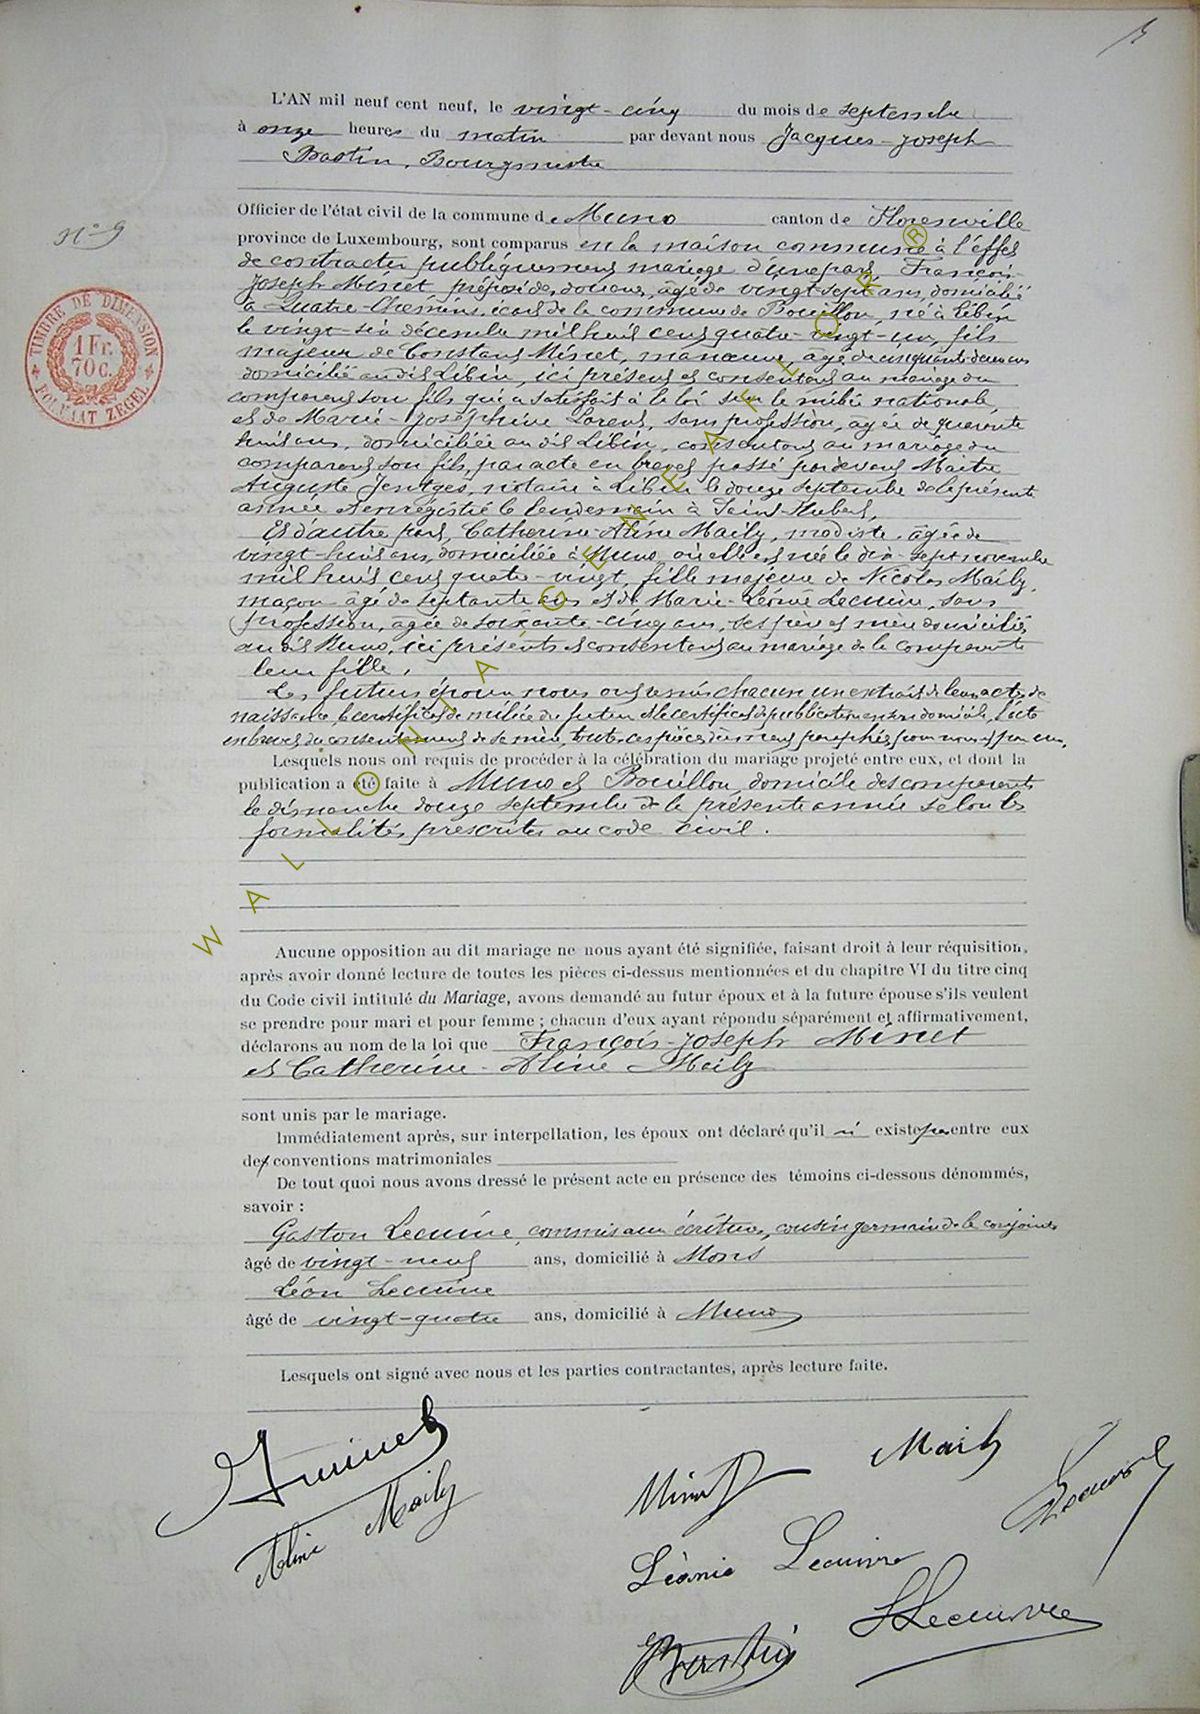 L'AN mil neuf cent neuf, le vingt-cinq du mois de septembre
à onze heures du matin par devant nous Jacques-Joseph
Bastin, Bourgmestre
Officier de l'état civil de la commune de Muno canton de Florenville
n° 9
province de Luxembourg, sont comparus en la maison commune à l'effet
de contracter publiquement mariage d'une part, François-
Joseph Minet préposé des douanes, âgé de vingt-sept ans, domicilié
à Quatre-Chemins, écart de la commune de Bouillon, né à Libin
le vingt-six décembre mil huit cent quatre-vingt-un, fils
majeur de Constant Minet, manœuvre, âgé de cinquante-deux ans
domicilié au dit Libin, ici présent et consentant au mariage du
comparant son fils qui a satisfait à la loi sur la milice nationale,
et de Marie-Joséphine Lorent, sans profession, âgée de quarante
huit ans, domiciliée au dit Libin, consentant au mariage du
comparant son fils, par acte en brevet passé par devant Maître
Auguste Jentges, notaire à Libin le douze septembre de la présente
année et enregistré le lendemain à Saint-Hubert,
Et d'autre part, Catherine-Aline Maily, modiste, âgée de
vingt-huit ans, domiciliée à Muno où elle est née le dix-sept novembre
mil huit cent quatre-vingt, fille majeure de Nicolas Maily,
maçon âgé de septante ans et de Marie-Léonie Lecuivre, sans
profession, âgée de soixante-cinq ans, ses père et mère domiciliés
au dit Muno, ici présents et consentant au mariage de la comparante
leur fille.
Les futurs époux nous ont remis chacun un extrait de leur acte de
naissance, le certificat de milice du futur et le certificat de publication en son domicile, l'acte
en brevet du consentement de sa mère, toutes ces pièces dûment paraphées par nous et par eux.
Lesquels nous ont requis de procéder à la célébration du mariage projeté entre eux, et dont la
publication a été faite à Muno et Bouillon, domicile des comparants
le dimanche douze septembre de la présente année selon les
formalités prescrites au code civil.
TIMBRE DE DIMENSION
1 Fr.
70 c.
FORMAAT ZEGEL
Aucune opposition au dit mariage ne nous ayant été signifiée, faisant droit à leur réquisition,
après avoir donné lecture de toutes les pièces ci-dessus mentionnées et du chapitre VI du titre cinq
du Code civil intitulé du Mariage, avons demandé au futur époux et à la future épouse s'ils veulent
se prendre pour mari et pour femme ; chacun d'eux ayant répondu séparément et affirmativement,
déclarons au nom de la loi que François-Joseph Minet
et Catherine-Aline Maily
sont unis par le mariage.
Immédiatement après, sur interpellation, les époux ont déclaré qu'il n' existe pas entre eux
de conventions matrimoniales
De tout quoi nous avons dressé le présent acte en présence des témoins ci-dessous dénommés,
savoir :
Gaston Lecuivre, commis aux écritures, cousin germain de la conjointe
âgé de vingt-neuf ans, domicilié à Mons
Léon Lecuivre
âgé de vingt-quatre ans, domicilié à Muno
Lesquels ont signé avec nous et les parties contractantes, après lecture faite.
Minet Maily
Aline Maily Minet Lecuivre
Léonie Lecuivre
Bastin Lecuivre
WALLONIA GENEAFLOR ®